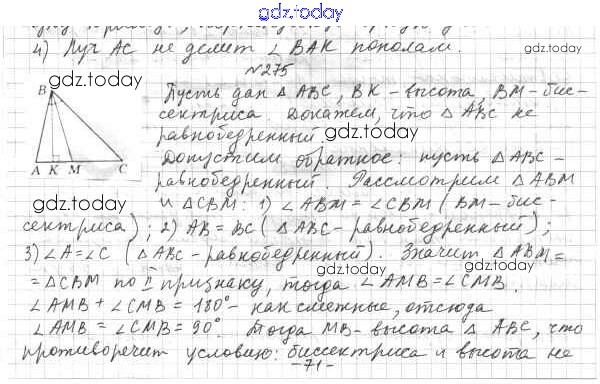 gdz.today
4) Луч АС не делит ∠ ВАК пополам.
gdz.today
№275
gdz.today
В
А К М С
Пусть дан △ АВС, ВК - высота, ВМ - бис-
сектриса. Докажем, что △ АВС не
равнобедренный.
gdz.today
Допустим обратное: пусть △ АВС -
равнобедренный. Рассмотрим △ АВМ
gdz.today
и △СВМ: 1) ∠ АВМ = ∠ СВМ ( ВМ - бис-
сектриса); 2) АВ = ВС ( △ АВС - равнобедренный);
3) ∠А=∠С ( △ АВС - равнобедренный). Значит △ АВМ =
gdz.today
= △СВМ по II признаку, тогда ∠ АМВ = ∠СМВ.
∠ АМВ + ∠ СМВ = 180° - как смежные, отсюда
gdz.today
∠ АМВ = ∠ СМВ = 90°. Тогда МВ - высота △ АВС, что
противоречит условию: биссектриса и высота не
-71-
gdz.today